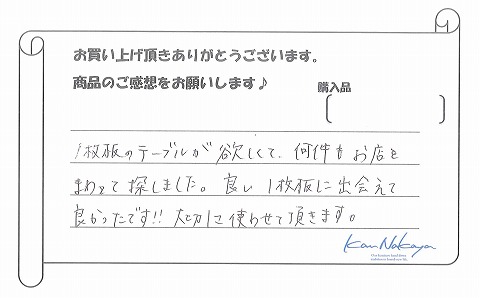 お買い上げ頂きありがとうございます。
商品のご感想をお願いします♪
購入品
1枚板のテーブルが欲しくて、何件もお店を
まわって探しました。良い1枚板に出会えて
良かったです!! 大切に使わせて頂きます。
Kan Nakaya